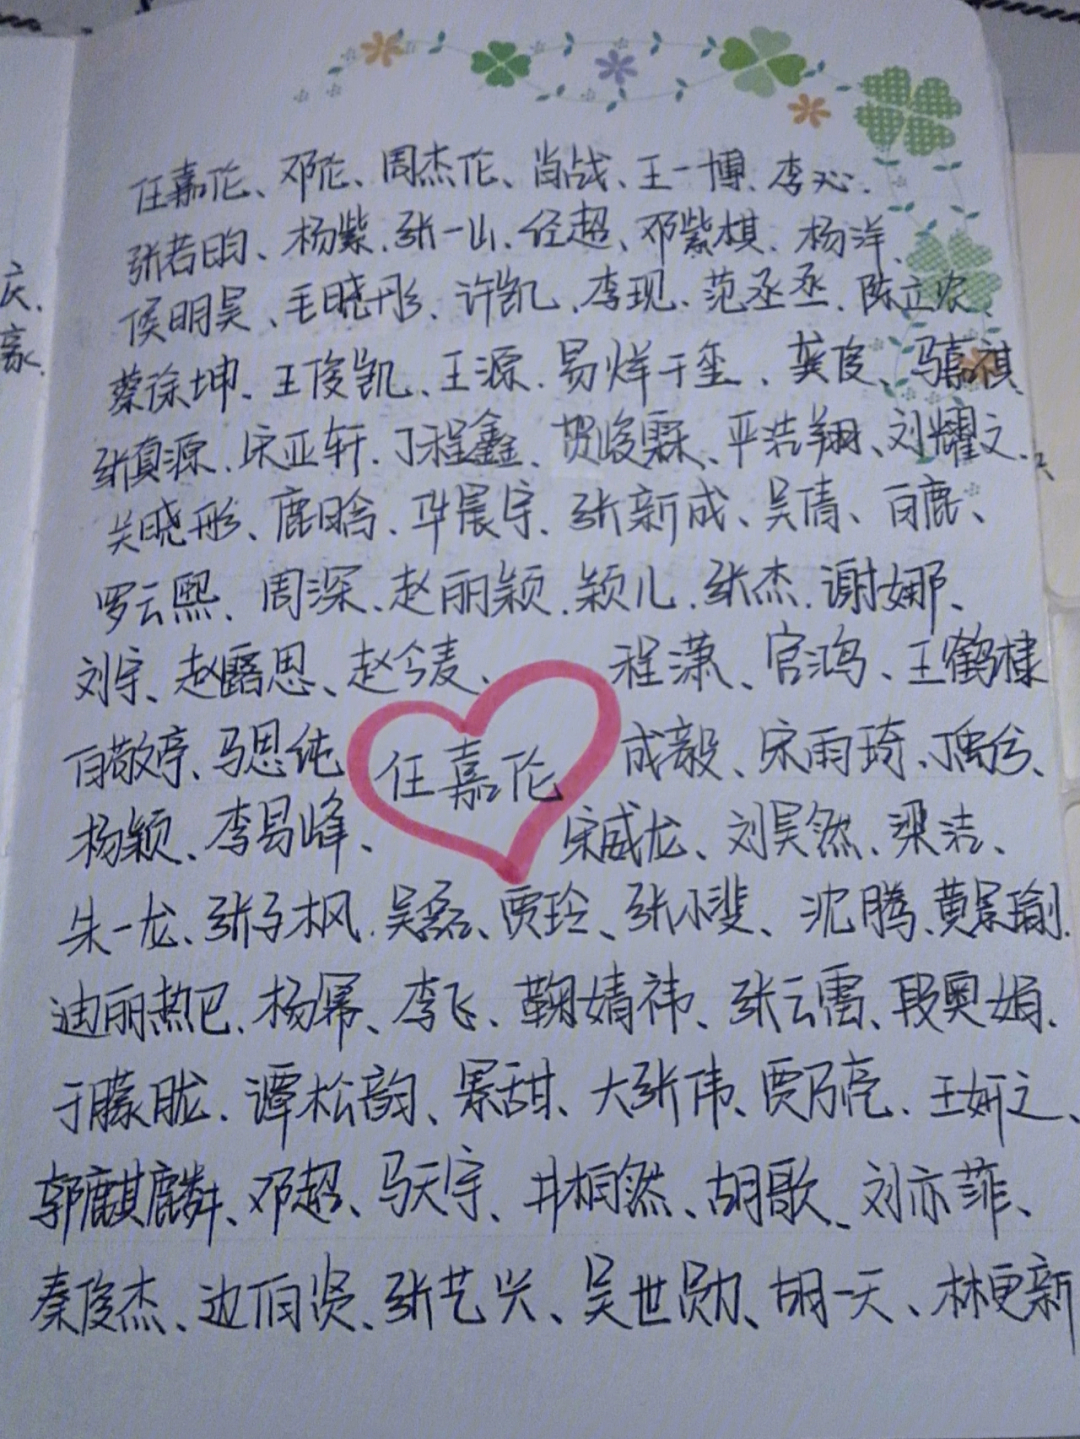 庆、
豪、
任嘉伦、邓伦、周杰伦、肖战、王一博、李沁、
张若昀、杨紫、张一山、任超、邓紫棋、杨洋、
侯明昊、毛晓彤、许凯、李现、范丞丞、陈立农
蔡徐坤、王俊凯、王源、易烊千玺、龚俊、马嘉祺
张真源、宋亚轩、丁程鑫、贺峻霖、严浩翔、刘耀文、
关晓彤、鹿晗、华晨宇、张新成、吴倩、白鹿、
罗云熙、周深、赵丽颖、颖儿、张杰、谢娜、
刘宇、赵露思、赵今麦、程潇、官鸿、王鹤棣
白敬亭、马思纯 任嘉伦 成毅、宋雨琦、丁禹兮、
杨颖、李易峰、宋威龙、刘昊然、梁洁、
朱一龙、张子枫、吴磊、贾玲、张小斐、沈腾、黄景瑜、
迪丽热巴、杨幂、李飞、鞠婧祎、张云雷、段奥娟、
于朦胧、谭松韵、景甜、大张伟、贾乃亮、王妍之、
郭麒麟、邓超、马天宇、井柏然、胡歌、刘亦菲、
秦俊杰、边伯贤、张艺兴、吴世勋、胡一天、林更新